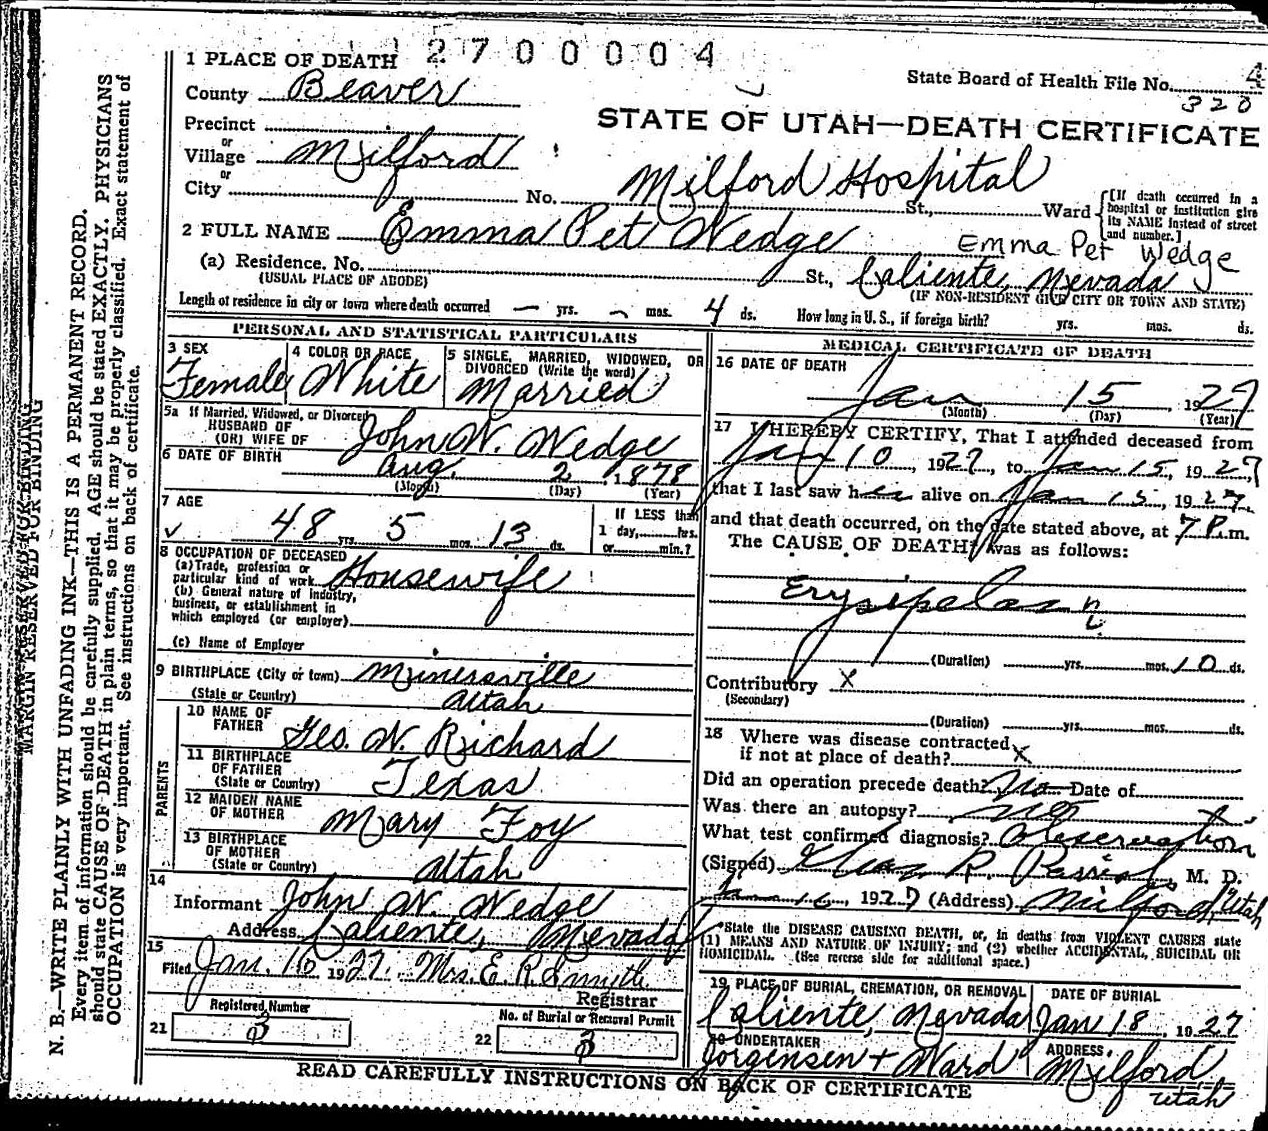 2700004
1 PLACE OF DEATH
State Board of Health File No. 4
320
County Beaver
STATE OF UTAH—DEATH CERTIFICATE
Precinct
or
Village Milford
or
City
No. Milford Hospital St., Ward
[If death occurred in a hospital or institution give its NAME instead of street and number.]
2 FULL NAME Emma Pet Wedge
Emma Pet Wedge
(a) Residence. No. St., Caliente, Nevada
(USUAL PLACE OF ABODE)
(IF NON-RESIDENT GIVE CITY OR TOWN AND STATE)
Length of residence in city or town where death occurred — yrs. — mos. 4 ds. How long in U. S., if foreign birth? yrs. mos. ds.
PERSONAL AND STATISTICAL PARTICULARS
3 SEX
Female
4 COLOR OR RACE
White
5 SINGLE, MARRIED, WIDOWED, OR DIVORCED (Write the word)
Married
5a If Married, Widowed, or Divorced
HUSBAND OF
(OR) WIFE OF John W. Wedge
6 DATE OF BIRTH Aug. 2 1878
(Month) (Day) (Year)
7 AGE
48 yrs. 5 mos. 13 ds.
If LESS than
1 day, hrs.
or min.?
8 OCCUPATION OF DECEASED
(a) Trade, profession or
particular kind of work Housewife
(b) General nature of industry,
business, or establishment in
which employed (or employer)
(c) Name of Employer
9 BIRTHPLACE (City or town) Minersville
(State or Country) Utah
PARENTS
10 NAME OF
FATHER Geo. W. Richard
11 BIRTHPLACE
OF FATHER
(State or Country) Texas
12 MAIDEN NAME
OF MOTHER Mary Foy
13 BIRTHPLACE
OF MOTHER
(State or Country) Utah
14
Informant John W. Wedge
Address Caliente, Nevada
15
Filed Jan. 16 1927. Mrs. E. R. Smyth
Registrar
21 Registered Number
3
22 No. of Burial or Removal Permit
3
MEDICAL CERTIFICATE OF DEATH
16 DATE OF DEATH
Jan 15, 1927
(Month) (Day) (Year)
17 I HEREBY CERTIFY, That I attended deceased from
Jan 10, 1927, to Jan 15, 1927,
that I last saw her alive on Jan 15, 1927,
and that death occurred, on the date stated above, at 7 P.m.
The CAUSE OF DEATH* was as follows:
Erysipelas
(Duration) yrs. mos. 10 ds.
Contributory X
(Secondary)
(Duration) yrs. mos. ds.
18 Where was disease contracted
if not at place of death? X
Did an operation precede death? No Date of
Was there an autopsy? No
What test confirmed diagnosis? Observation
(Signed) R. M. D.
Jan 16, 1927 (Address) Milford, Utah
*State the DISEASE CAUSING DEATH, or, in deaths from VIOLENT CAUSES state
(1) MEANS AND NATURE OF INJURY; and (2) whether ACCIDENTAL, SUICIDAL OR
HOMICIDAL. (See reverse side for additional space.)
19 PLACE OF BURIAL, CREMATION, OR REMOVAL
Caliente, Nevada
DATE OF BURIAL
Jan 18, 1927
20 UNDERTAKER
Jorgensen + Ward
ADDRESS
Milford
Utah
READ CAREFULLY INSTRUCTIONS ON BACK OF CERTIFICATE
MARGIN RESERVED FOR BINDING
N. B.—WRITE PLAINLY WITH UNFADING INK—THIS IS A PERMANENT RECORD.
Every item of information should be carefully supplied. AGE should be stated EXACTLY. PHYSICIANS
should state CAUSE OF DEATH in plain terms, so that it may be properly classified. Exact statement of
OCCUPATION is very important. See instructions on back of certificate.